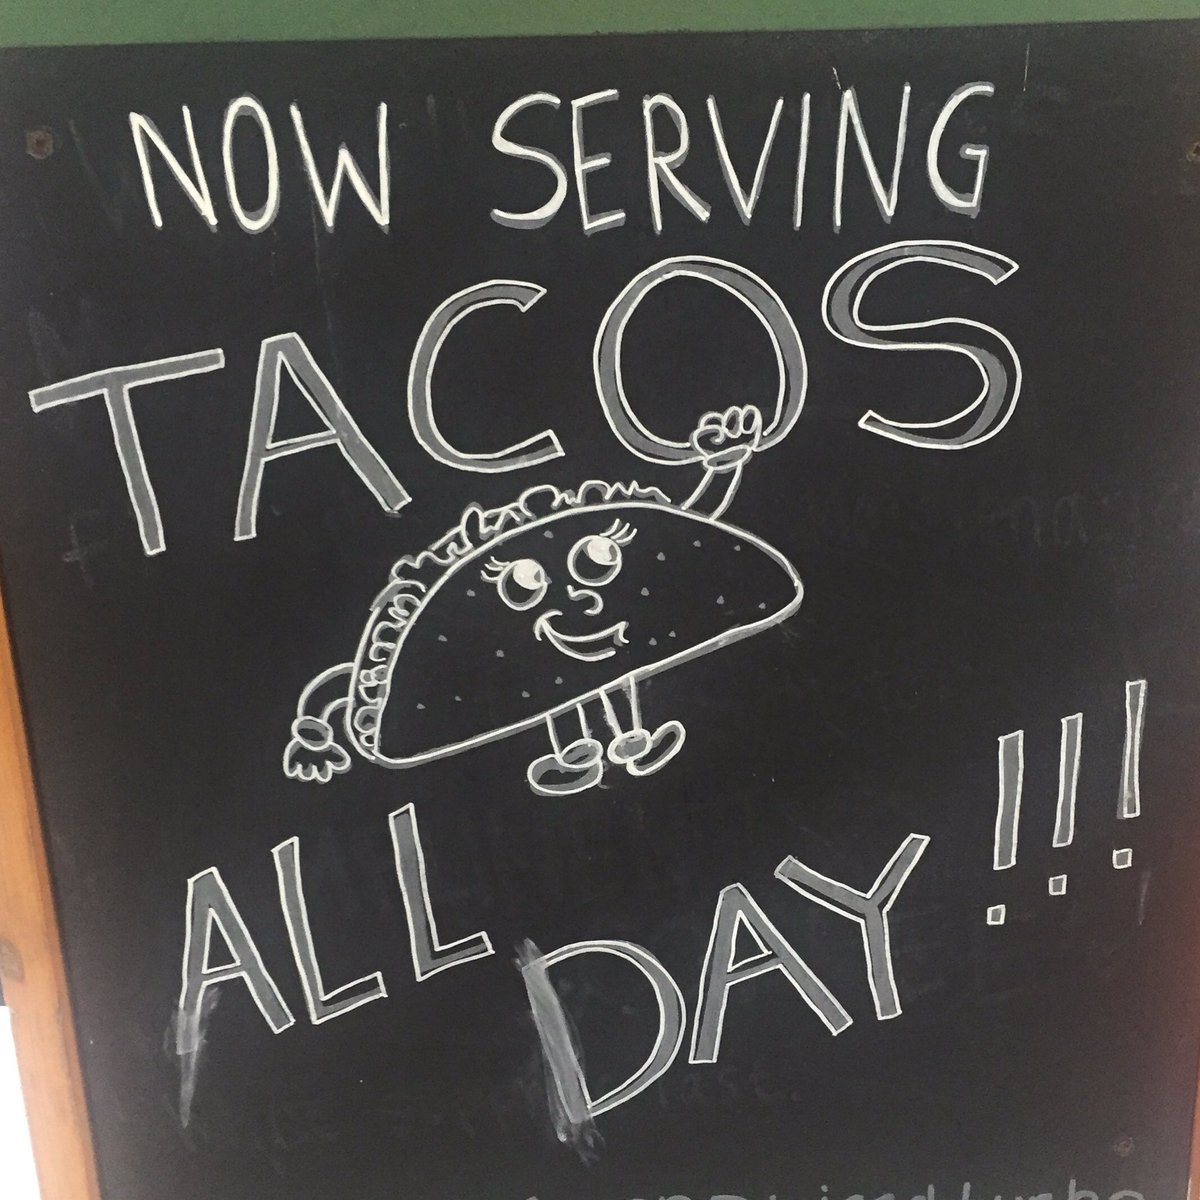 NOW SERVING
TACOS
ALL DAY!!!